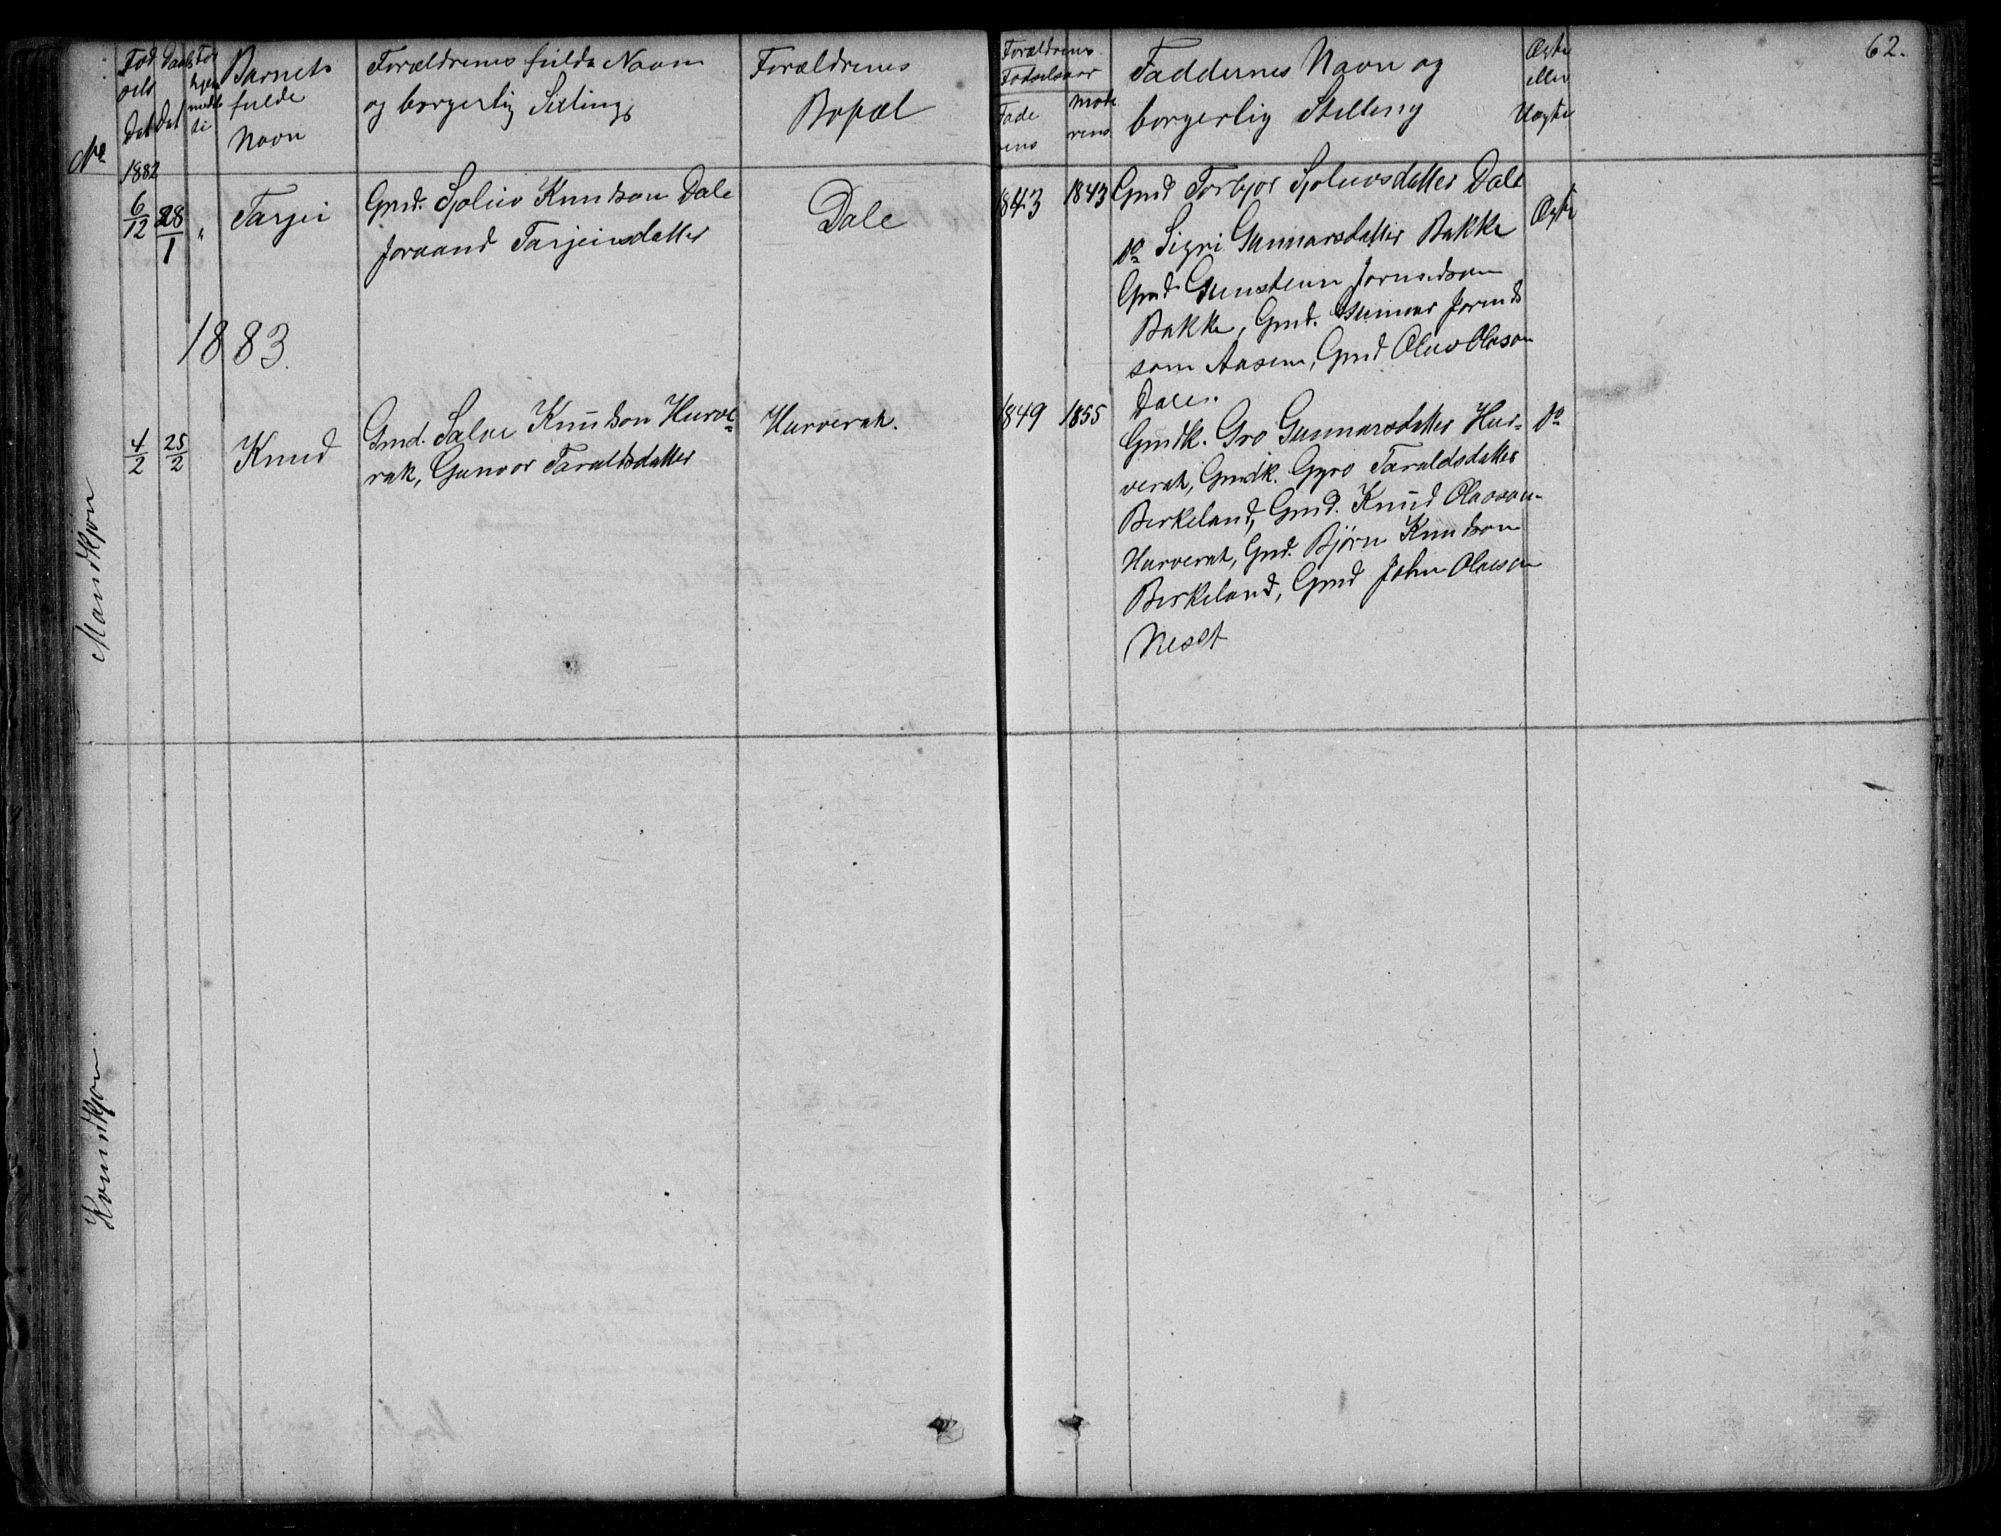 62.
No
Fød
sels
Dat
Daabs
Dat
Barnets
fulde
Navn
Forældrenes fulde Navn
og borgerlig Stilling
Forældrenes
Bopæl
Forældrenes
Fødselsaar
Fade
rens
Mode
rens
Faddernes Navn og
borgerlig Stilling
Ægte
eller
Uægte
Mandkjøn
1882
6/12 28/1 " Tarjei
Gmd. Sjoluv Knudson Dale
Joraand Tarjeisdatter
Dale
1843 1843
Gmd Torbjør Sjoluvsdatter Dale
Do Sigri Gunnarsdatter Bakke
Gmd Gunstein Jorundson
Bakke, Gmd. Gunnar Jorund
son Aasen, Gmd Olav Olason
Dale.
Ægte
1883.
4/2 25/2 Knud
Gmd. Salve Knudson Hurve-
rak, Gunvor Taraldsdatter
Hurverak.
1849 1855
Gmdk. Gro Gunnarsdatter Hur-
verak, Gmdk. Gyro Taraldsdatter
Birkeland, Gmd. Knud Olavson
Hurverak, Gmd. Bjørn Knudson
Birkeland, Gmd John Olavson
Neset
Do
Kvindkjøn.